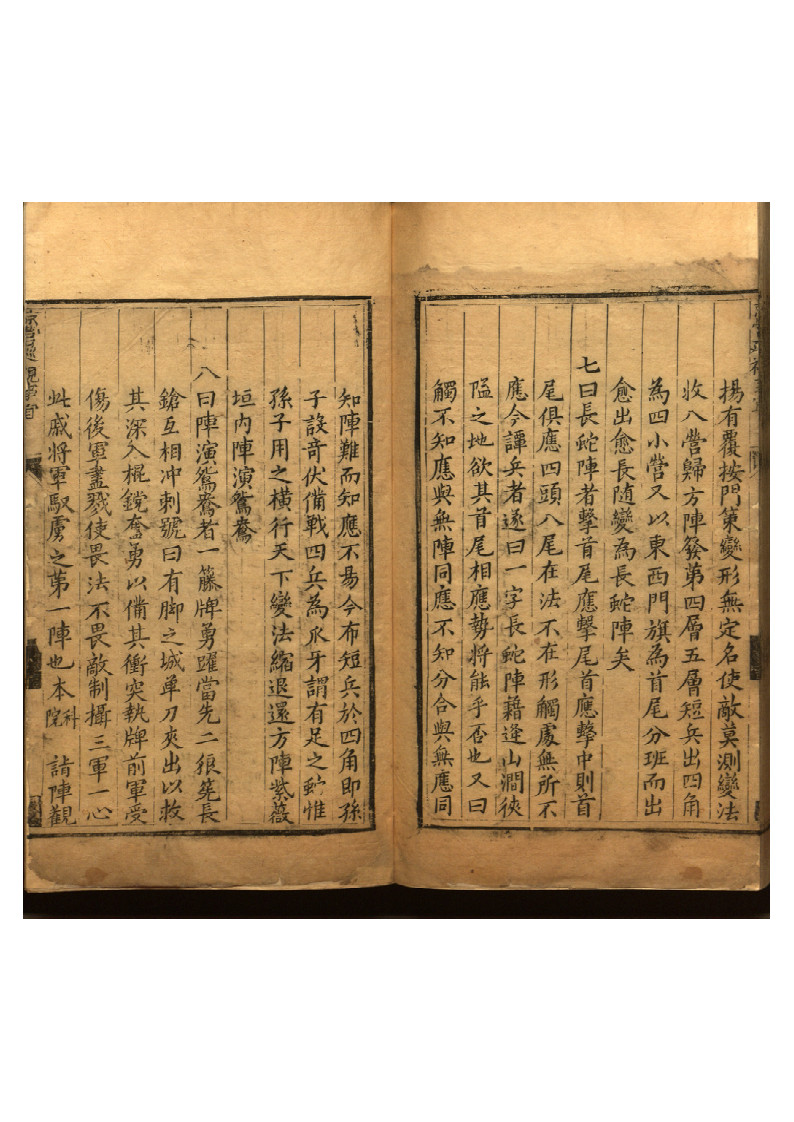 揚有覆按門策變形無定名使敵莫測變法
收八營歸方陣發第四層五層短兵出四角
為四小營又以東西門旗為首尾分班而出
愈出愈長隨變為長蛇陣矣
七曰長蛇陣者擊首尾應擊尾首應擊中則首
尾俱應四頭八尾在法不在形觸處無所不
應今譚兵者遂曰一字長蛇陣藉逢山澗俠
隘之地欲其首尾相應勢將能乎否也又曰
觸不知應與無陣同應不知分合與無應同
知陣難而知應不易今布短兵於四角即孫
子設竒伏備戰四兵為爪牙謂有足之蛇惟
孫子用之橫行天下變法縮退還方陣紫薇
垣內陣演鴛鴦
八曰陣演鴛鴦者一籐牌勇躍當先二狼筅長
鎗互相冲刺號曰有脚之城单刀夾出以救
其深入棍鎲奮勇以備其衝突執牌前軍受
傷後軍盡戮使畏法不畏敵制攝三軍一心
此戚將軍馭虜之第一陣也本科院 請陣觀